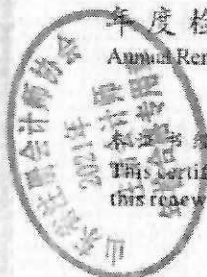 年度检
Annual Ren
本证书经
This certif
this renew
山东省注册会计师协会
2021年